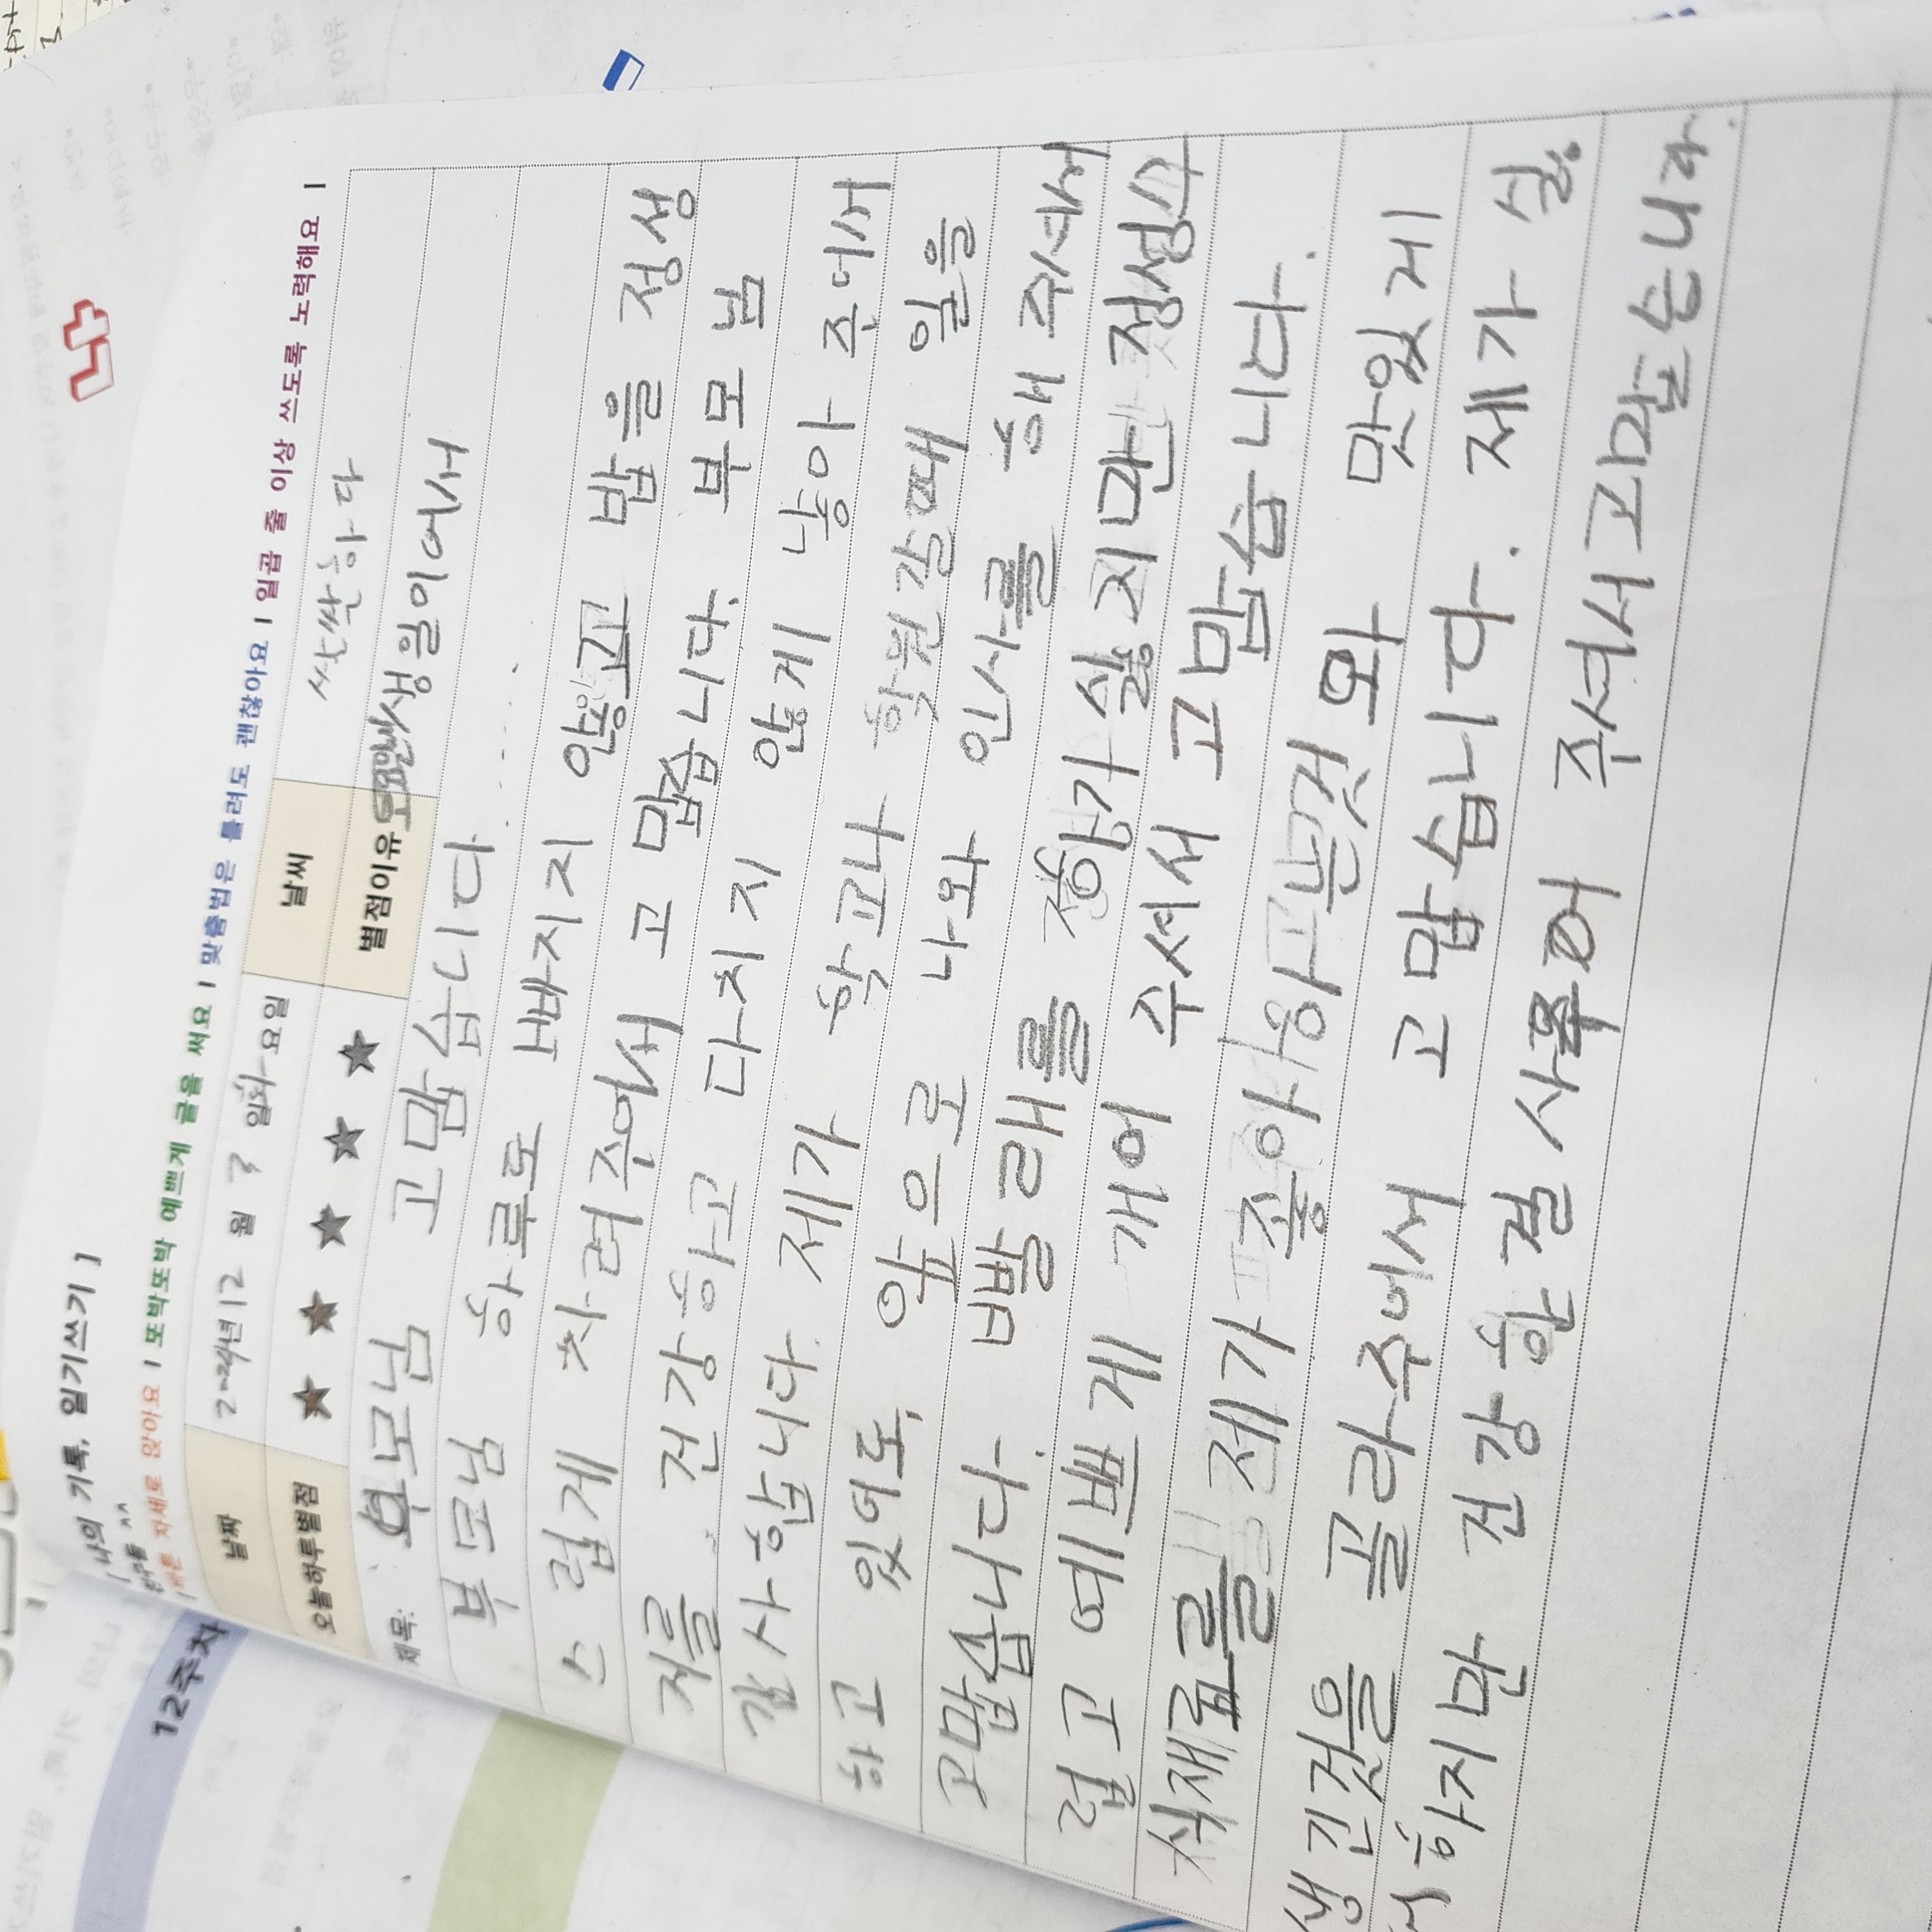 [ 나의 기록, 일기쓰기 ]
바른 자세로 앉아요 | 또박또박 예쁘게 글을 써요 | 맞춤법은 틀려도 괜찮아요 | 일곱 줄 이상 쓰도록 노력해요 |
날짜 2024년 12 월 3 일 화요일 날씨 싸싼하다
오늘하루별점 ★ ★ ★ ★ ★ 별점이유 생일이어서
제목: 부모님 고맙습니다
부모님 하루로 빠지지 않고 밥을 정성
스럽게 차려주어서 고맙습니다. 부모님
저를 건강하고 다치지 않게 낳아 주어서
감사합니다. 제가 학교나 학원갈때 일을
하고 있어도, 앞으로 나와 인사를 해 주셔서
고맙습니다. 빨래를 정하기 싫지만 정성스
럽고 예쁘게 개어 주셔서 고맙습니다.
식재료를 제가 좋아하는것와 맛있게
생긴것을 골라주어서 고맙습니다. 제가 싫
어하지만 건강한 걸 사주어 주셔서고맙습니다.
12주차